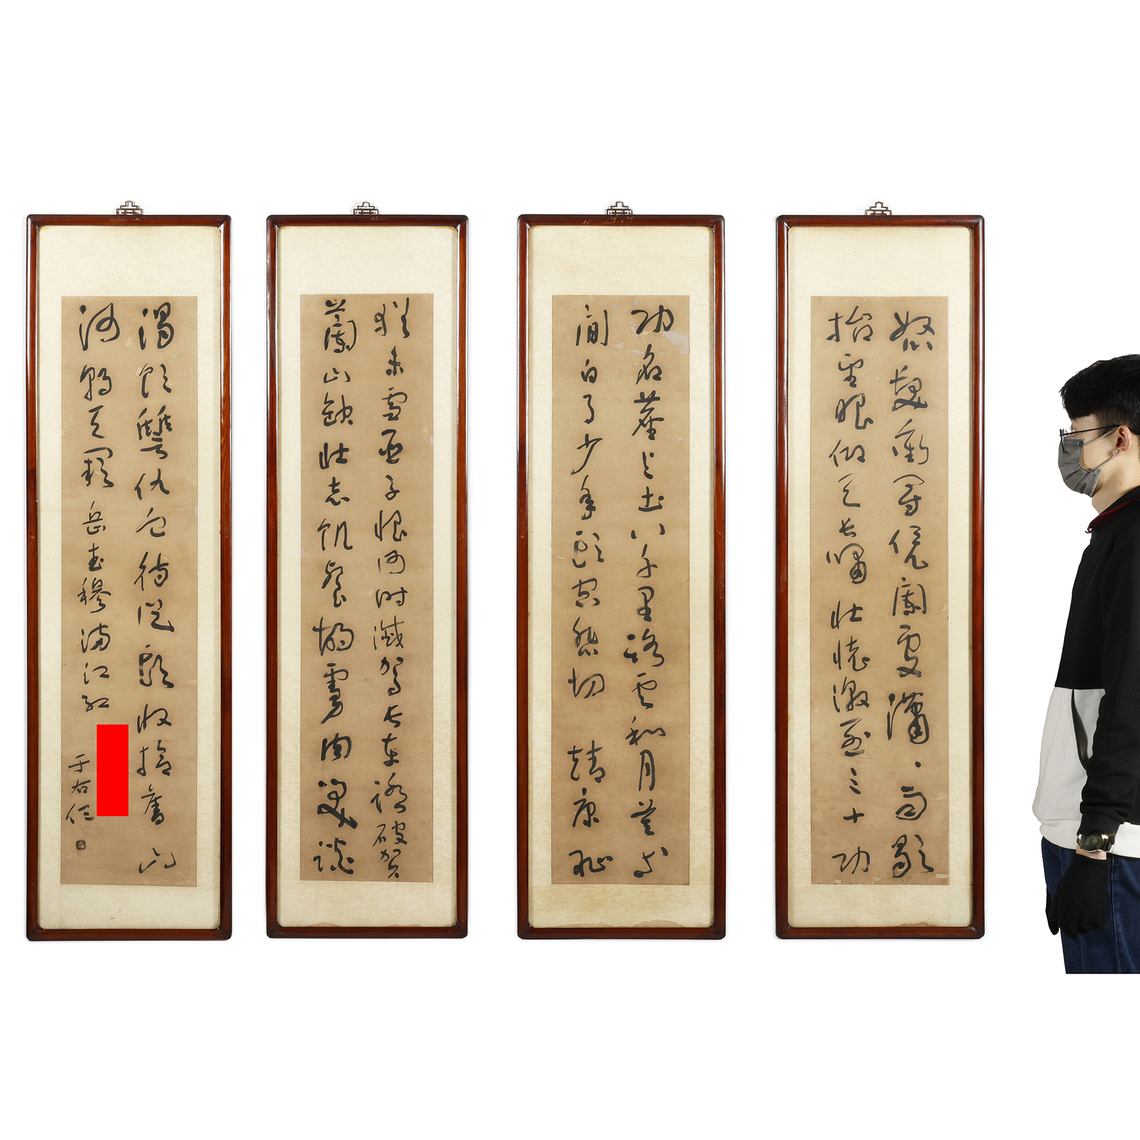 怒髮衝冠憑闌處瀟、雨歇
抬望眼仰天長嘯壯懷激烈三十功
功名塵與土八千里路雲和月莫等
閒白了少年頭空愁切 靖康恥
猶未雪臣子恨何時滅駕長車踏破賀
蘭山缺壯志飢餐胡虜肉笑談
渴飲讐仇血待從頭收拾舊山
河朝天闕 岳武穆滿江紅
于右任